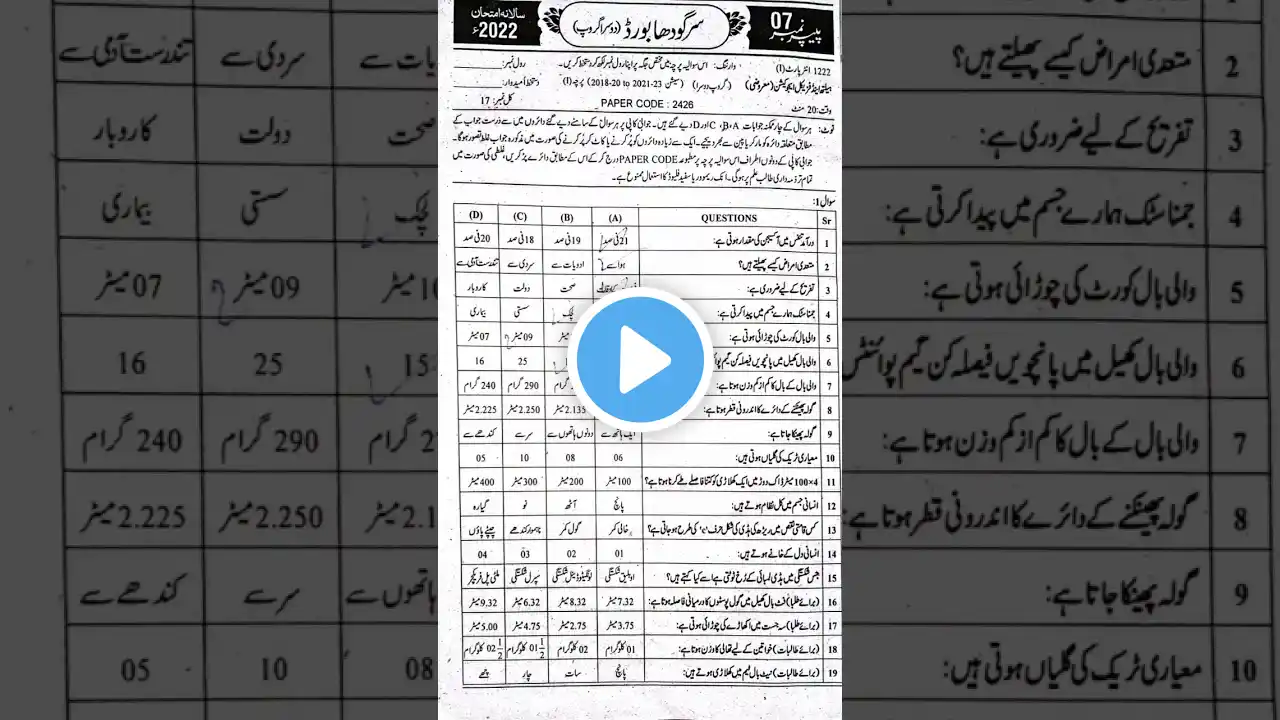 پیپر نمبر 07
سرگودھا بورڈ (دوسرا گروپ)
سالانہ امتحان 2022ء
1222 انٹر پارٹ (I) وارننگ: اس سوالیہ پرچہ میں مختص جگہ پر اپنا رول نمبر لکھ کر دستخط کریں۔ رول نمبر:
ہیلتھ اینڈ فزیکل ایجوکیشن (معروضی) (گروپ دوسرا) (سیشن 2018-20 to 2021-23) پرچہ (I) دستخط امیدوار:
وقت: 20 منٹ PAPER CODE : 2426 کل نمبر: 17
نوٹ: ہر سوال کے چار ممکنہ جوابات A، B، C اور D دیے گئے ہیں۔ جوابی کاپی پر ہر سوال کے سامنے دیے گئے دائروں میں سے درست جواب کے
مطابق متعلقہ دائرہ کو مارکر یا پین سے بھر دیجیے۔ ایک سے زیادہ دائروں کو پُر کرنے یا کاٹ کر پُر کرنے کی صورت میں مذکورہ جواب غلط تصور ہوگا۔
جوابی کاپی کے دونوں اطراف اس سوالیہ پرچہ پر مطبوعہ PAPER CODE درج کر کے اس کے مطابق دائرے پُر کریں، غلطی کی صورت میں
تمام تر ذمہ داری طالب علم پر ہوگی۔ انک ریموور یا سفید فلیوڈ کا استعمال ممنوع ہے۔
سوال 1:
Sr QUESTIONS (A) (B) (C) (D)
1 درآمد تنفس میں آکسیجن کی مقدار ہوتی ہے: 21 فی صد 19 فی صد 18 فی صد 20 فی صد
2 متعدی امراض کیسے پھیلتے ہیں؟ ہوا سے ادویات سے سردی سے تندرست آدمی سے
3 تفریح کے لیے ضروری ہے: صحت دولت کاروبار
4 جمناسٹک ہمارے جسم میں پیدا کرتی ہے: لچک سستی بیماری
5 والی بال کورٹ کی چوڑائی ہوتی ہے: 09 میٹر 07 میٹر
6 والی بال کھیل میں پانچویں فیصلہ کن گیم پوائنٹس 25 16
7 والی بال کے بال کا کم از کم وزن ہوتا ہے: 290 گرام 240 گرام
8 گولہ پھینکنے کے دائرے کا اندرونی قطر ہوتا ہے: 2.135 میٹر 2.250 میٹر 2.225 میٹر
9 گولہ پھینکا جاتا ہے: ایک ہاتھ سے دونوں ہاتھوں سے سر سے کندھے سے
10 معیاری ٹریک کی گلیاں ہوتی ہیں: 06 08 10 05
11 4×100 میٹر ڈاک دوڑ میں ایک کھلاڑی کو کتنا فاصلہ طے کرنا ہوتا ہے؟ 100 میٹر 200 میٹر 300 میٹر 400 میٹر
12 انسانی جسم میں کل نظام ہوتے ہیں: پانچ آٹھ نو گیارہ
13 کس قامتی نقص میں ریڑھ کی ہڈی کی شکل حرف 'c' کی طرح ہو جاتی ہے؟ خالی کمر گول کمر ہموار کندھے چپٹے پاؤں
14 انسانی دل کے خانے ہوتے ہیں: 01 02 03 04
15 جس شکستگی میں ہڈی لمبائی کے رُخ ٹوٹتی ہے اسے کیا کہتے ہیں؟ اوبلیق شکستگی لونگیٹیوڈینل شکستگی سپرل شکستگی ملٹی پل فریکچر
16 (برائے طلبا) فٹ بال کھیل میں گول پوسٹوں کا درمیانی فاصلہ ہوتا ہے: 7.32 میٹر 8.32 میٹر 6.32 میٹر 9.32 میٹر
17 (برائے طلبا) سہ جست میں اکھاڑے کی چوڑائی ہوتی ہے: 3.75 میٹر 2.75 میٹر 4.75 میٹر 5.00 میٹر
18 (برائے طالبات) خواتین کے لیے تھالی کا وزن ہوتا ہے: 01 کلوگرام 02 کلوگرام 01 1/2 کلوگرام 02 1/2 کلوگرام
19 (برائے طالبات) نیٹ بال ٹیم میں کھلاڑی ہوتے ہیں: پانچ سات چار چھے